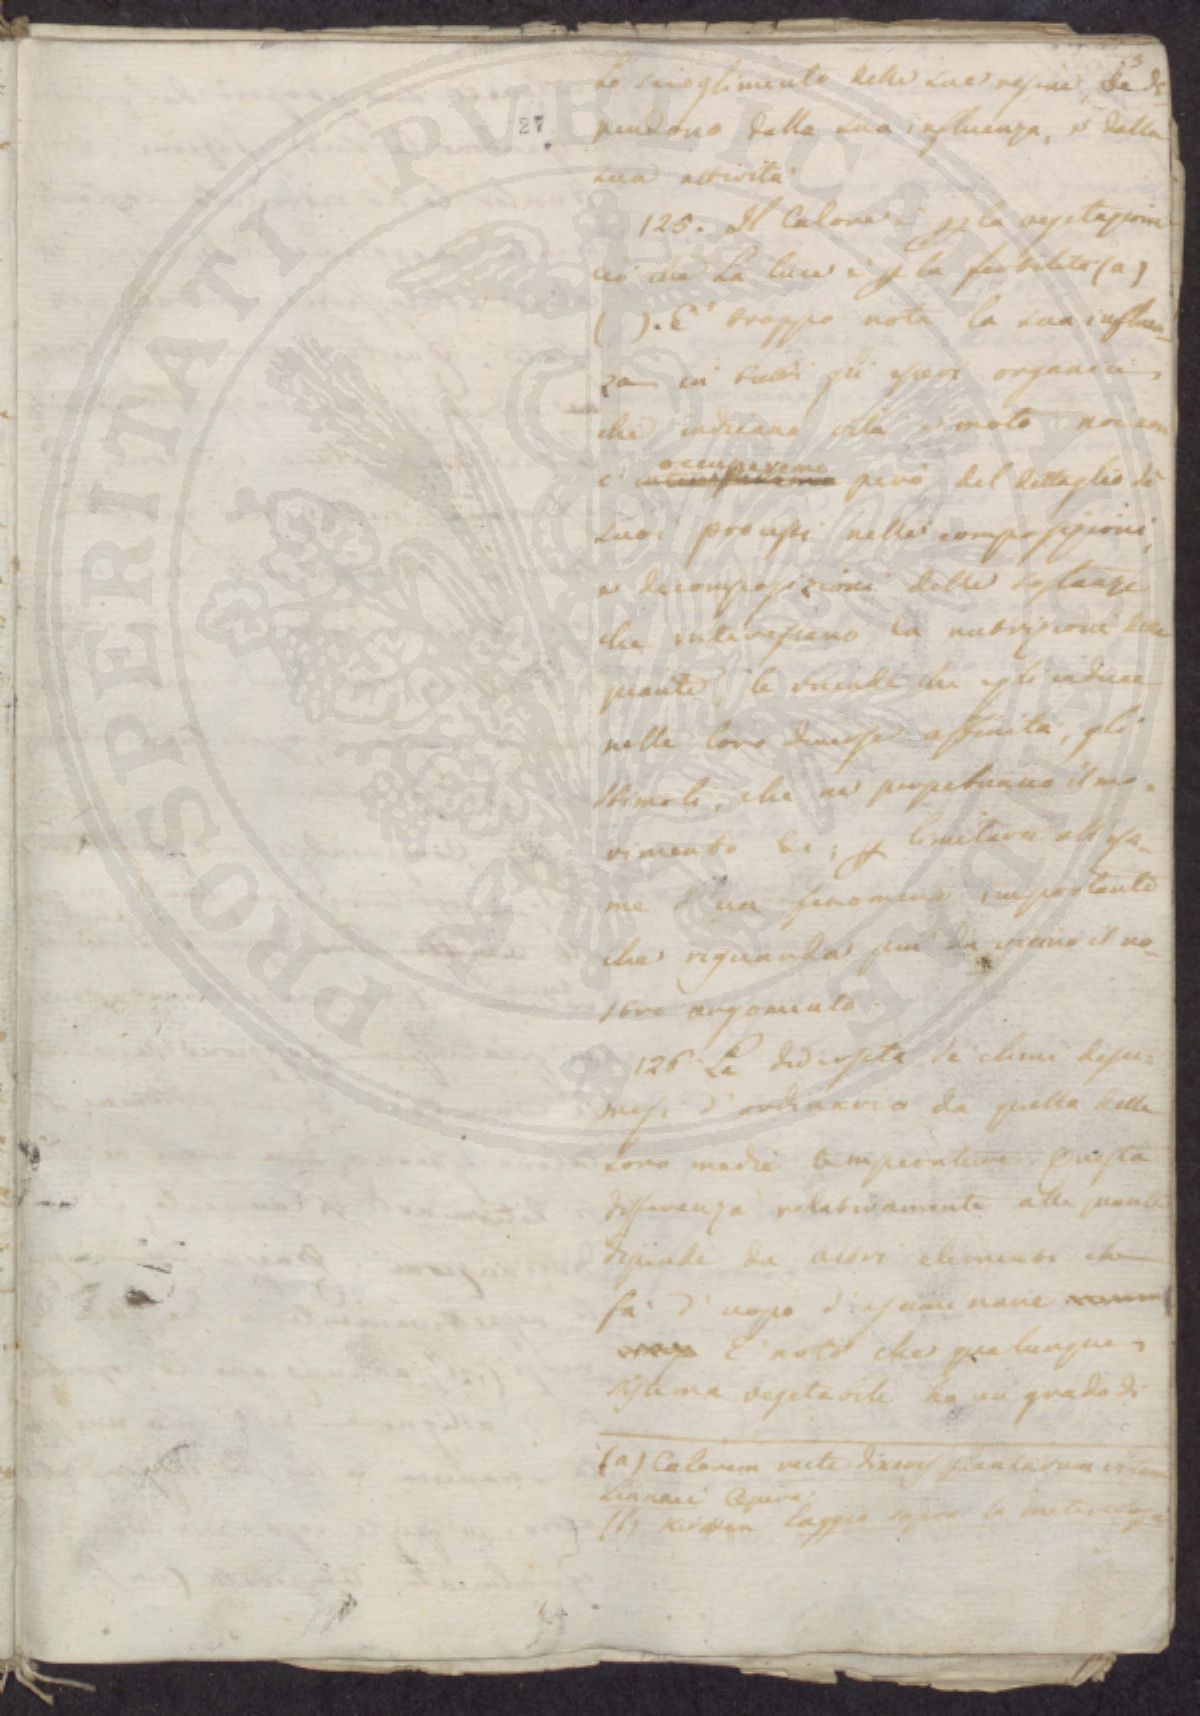 53
27
lo scioglimento delle sue resine, &c di-
pendono dalla sua influenza, e dalla
sua attività
125. Il Calore è p la vegetazione
ciò che la luce è p la fertilità (a)
( ). E' troppo nota la sua influen-
za in tutti gli esseri organici
che indicano vita e moto: noi non
c' occuperemo però del dettaglio de'
suoi processi nelle composizioni,
e decomposizioni delle sostanze
che interessano la nutrizione delle
piante, le vicende che egli induce
nelle loro diverse affinità, gli
stimoli, che ne perpetuano il mo-
vimento &c; p limitarci all'esa-
me d'un fenomeno importante
che riguarda più da vicino il no-
stro argomento.
126. La diversità de' climi desu-
mesi d'ordinario da quella delle
loro medie temperature. Questa
differenza relativamente alle piante
dipende da altri elementi che
fa d'uopo d'esaminare
E' noto che qualunque
sistema vegetabile ha un grado di
(a) Calorem recte dixeris plantarum vitam
Linnaei Opera.
(b) Kirwan Saggio sopra la meteorologia
PROSPERITATI PUBLICAE AUGENDAE